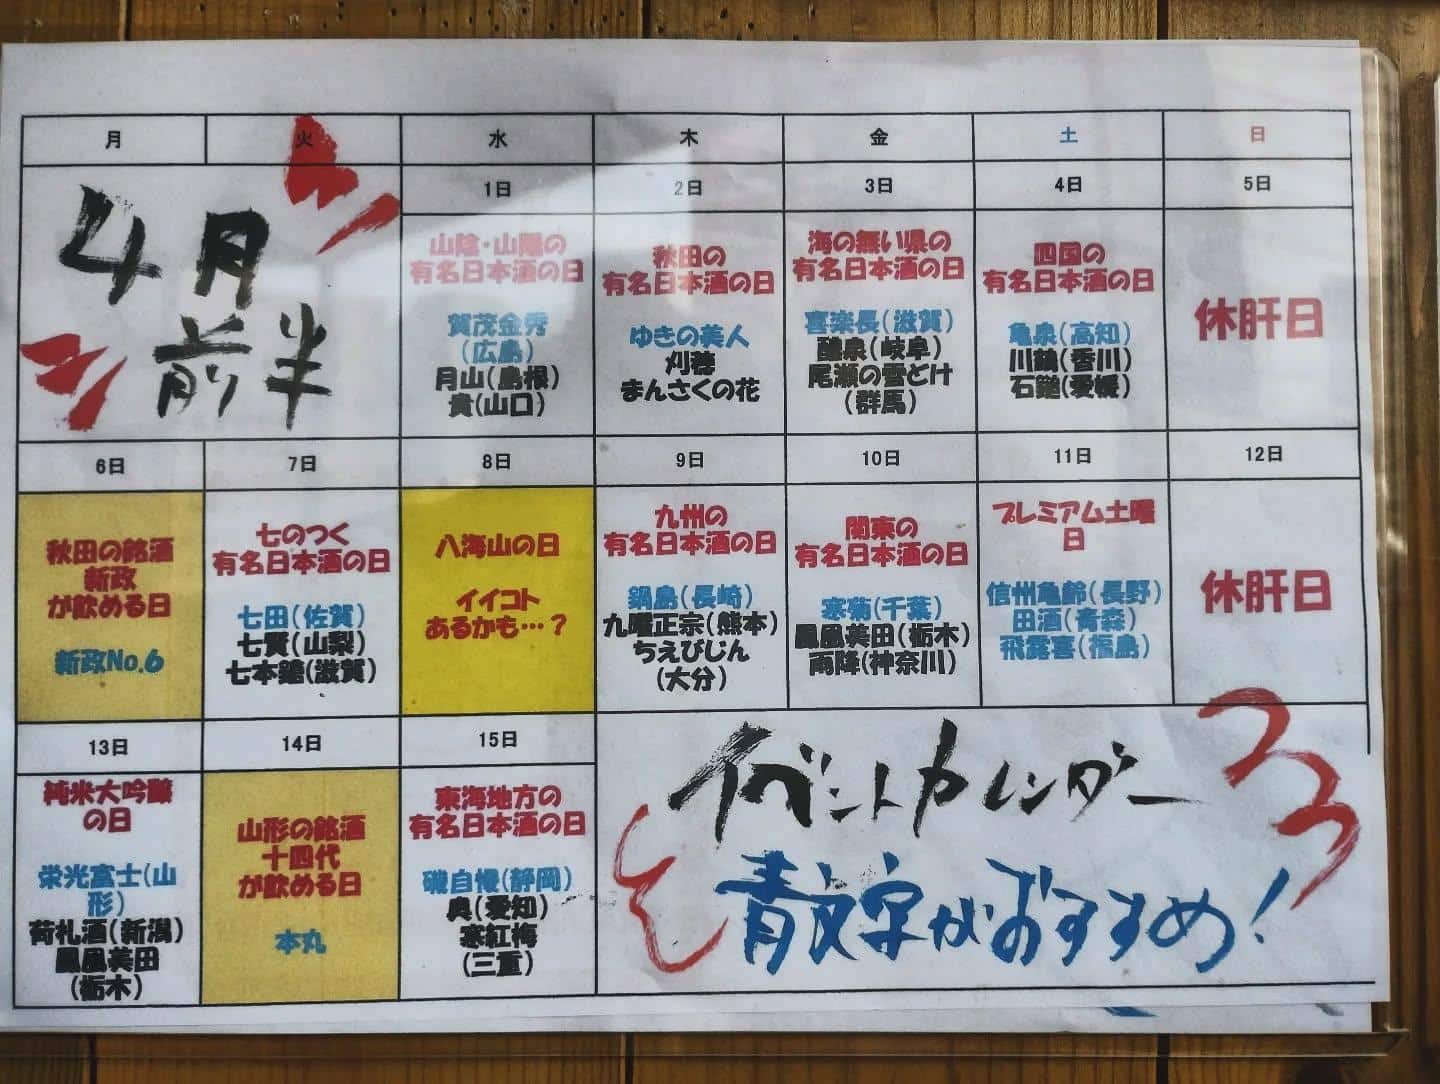 月 火 水 木 金 土 日
4月
前半
1日
山陰・山陽の
有名日本酒の日
賀茂金秀
(広島)
月山(島根)
貴(山口)
2日
秋田の
有名日本酒の日
ゆきの美人
刈穂
まんさくの花
3日
海の無い県の
有名日本酒の日
喜楽長(滋賀)
醴泉(岐阜)
尾瀬の雪どけ
(群馬)
4日
四国の
有名日本酒の日
亀泉(高知)
川鶴(香川)
石鎚(愛媛)
5日
休肝日
6日
秋田の銘酒
新政
が飲める日
新政No.6
7日
七のつく
有名日本酒の日
七田(佐賀)
七賢(山梨)
七本鎗(滋賀)
8日
八海山の日
イイコト
あるかも…?
9日
九州の
有名日本酒の日
鍋島(長崎)
九曜正宗(熊本)
ちえびじん
(大分)
10日
関東の
有名日本酒の日
寒菊(千葉)
鳳凰美田(栃木)
雨降(神奈川)
11日
プレミアム土曜
日
信州亀齢(長野)
田酒(青森)
飛露喜(福島)
12日
休肝日
13日
純米大吟醸
の日
栄光冨士(山
形)
荷札酒(新潟)
鳳凰美田
(栃木)
14日
山形の銘酒
十四代
が飲める日
本丸
15日
東海地方の
有名日本酒の日
磯自慢(静岡)
奥(愛知)
寒紅梅
(三重)
イベントカレンダー
青文字がおすすめ!